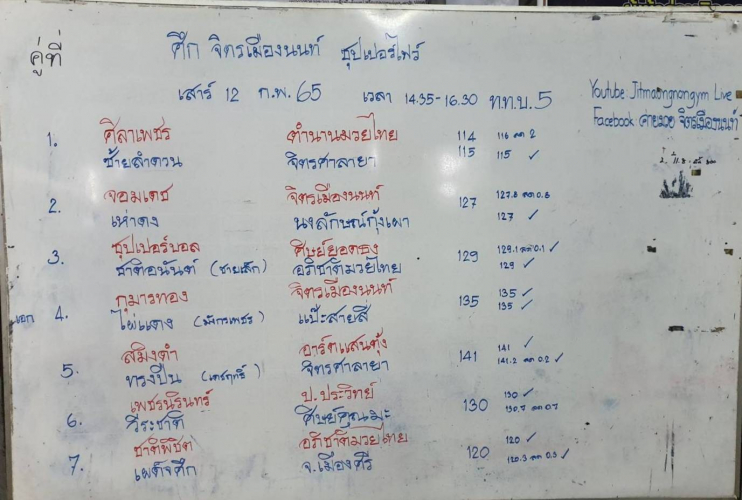 คู่ที่
ศึก จิตรเมืองนนท์ ซุปเปอร์ไฟว์
เสาร์ 12 ก.พ. 65 เวลา 14.35-16.30 ททบ. 5
Youtube Jitmuangnongym Live
Facebook ค่ายมวย จิตรเมืองนนท์
1. ศิลาเพชร ตำนานมวยไทย 114 116 ลด 2
ซ้ายลำดวน จิตรศาลายา 115 115 ✓
2. จอมเดช จิตรเมืองนนท์ 127 127.8 ลด 0.8
เห่าดง นงลักษณ์กุ้งเผา 127 ✓
3. ซุปเปอร์บอล ศิษย์ยอดธง 129 129.1 ลด 0.1 ✓
ชาติอนันต์ (ชายเล็ก) อภิชาติมวยไทย 129 ✓
กุมารทอง จิตรเมืองนนท์ 135 ✓
เอก 4. ไผ่แดง (มังกรเพชร) แป๊ะสายสี่ 135 135 ✓
สมิงดำ อาร์ตแสนตุ้ง 141 ✓
5. ทรงปืน (เดชฤทธิ์) จิตรศาลายา 141 141.2 ลด 0.2 ✓
เพชรนิรินทร์ ป.ประวิทย์ 130 ✓
6. วีระชาติ ศิษย์คุณมะ 130 130.7 ลด 0.7
ชาติพิชิต อภิชาติมวยไทย 120 ✓
7. เผด็จศึก จ.เมืองศรี 120 120.3 ลด 0.3 ✓